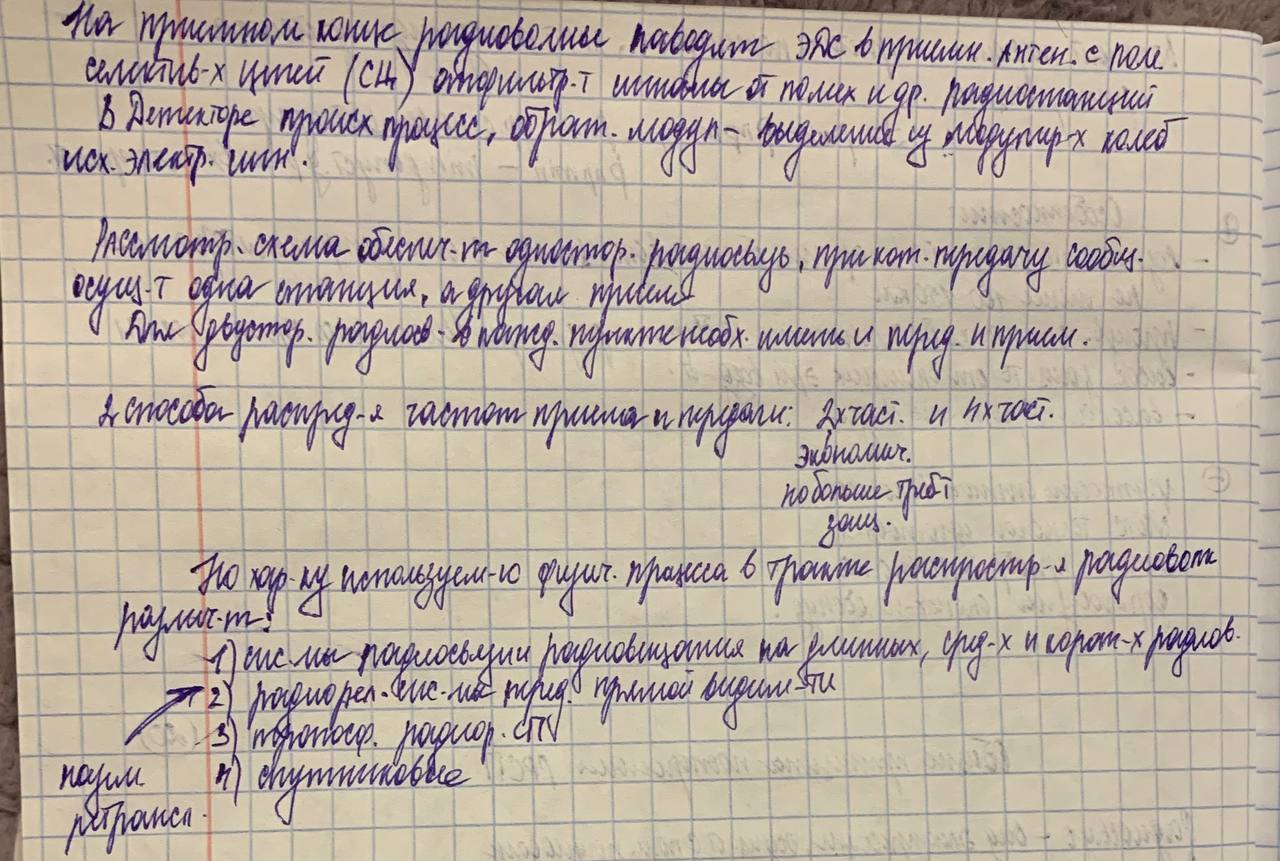 На приемном конце радиоволны наводят ЭДС в приемн. Антен. с пом.
селектив-х цепей (СЦ) отфильтр-т сигналы от помех и др. радиостанций
В Детекторе происх процесс, обрат. модул - выделение из модулир-х колеб
исх. электр. сигн.
Рассмотр. схема обеспеч-т одностор. радиосвязь, при кот. передачу сообщ.
осущ-т одна станция, а другая прием
Для двустор. радиосв - в кажд. пункте необх. иметь и перед. и прием.
2 способа распред-я частот приема и передачи: 2х част. и 4х част.
экономич.
но больше треб
защ.
По хар-ку используем-го физич. процесса в тракте распростр-я радиоволн
различ-т:
1) сис-мы радиосвязи радиовещания на длинных, сред-х и корот-х радиов.
2) радиорел. сис-мы перед. прямой видим-ти
3) тропосф. радиор. СП
назем. 4) спутниковые
ретрансл.